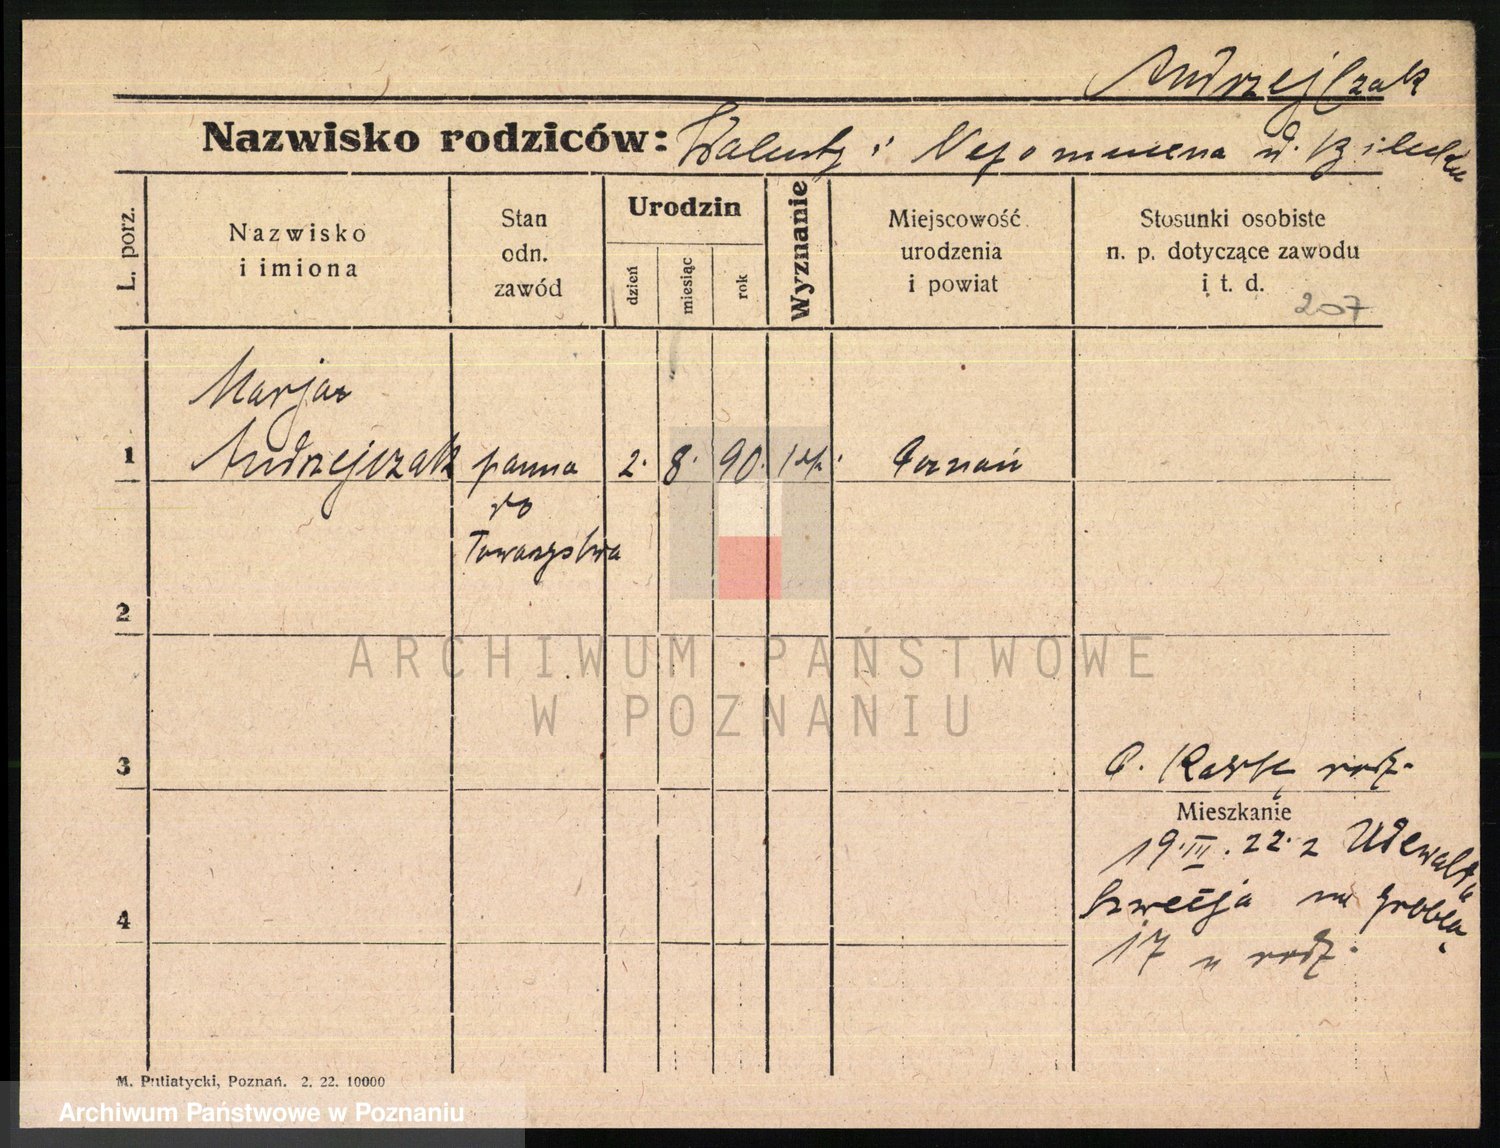 Andrzejczak
Nazwisko rodziców: Walenty i Nepomucena
L. porz.
Nazwisko
i imiona
Stan
odn.
zawód
Urodzin
dzień
miesiąc
rok
Wyznanie
Miejscowość
urodzenia
i powiat
Stosunki osobiste
n. p. dotyczące zawodu
i t. d.
207
Marja
1 Andrzejczak panna 2. 8. 90. Poznań
do
Towarzystwa
2
ARCHIWUM PAŃSTWOWE
W POZNANIU
3
rodz.
Mieszkanie
19.III.22. z
Szwecja na Grobla
4
17 u rodz.
M. Putiatycki, Poznań. 2. 22. 10000
Archiwum Państwowe w Poznaniu